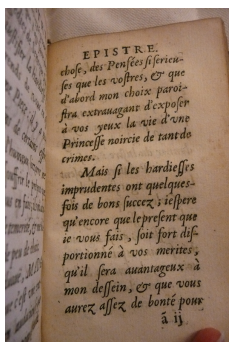 EPISTRE.
chose, des Pensées si serieu-
ses que les vostres, & que
d'abord mon choix paroi-
stra extrauagant d'exposer
à vos yeux la vie d'vne
Princesse noircie de tant de
crimes.
Mais si les hardiesses
imprudentes ont quelques-
fois de bons succez ; i'espere
qu'encore que le present que
ie vous fais, soit fort dis-
portionné à vos merites,
qu'il sera auantageux à
mon dessein, & que vous
aurez assez de bonté pour
á ij